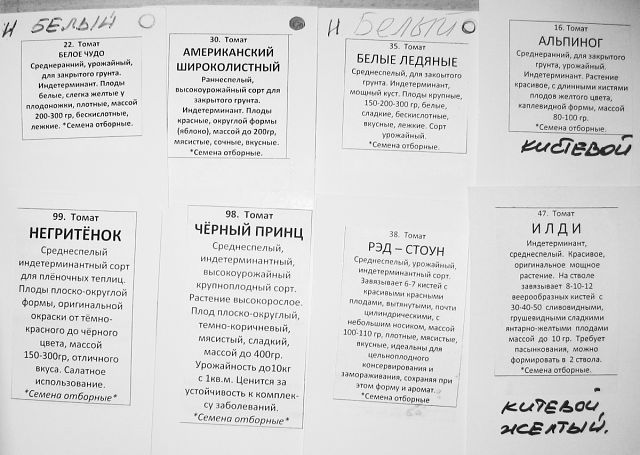 И БЕЛЫЙ
22. Томат
БЕЛОЕ ЧУДО
Среднеранний, урожайный,
для закрытого грунта.
Индетерминант. Плоды
белые, слегка желтые у
плодоножки, плотные, массой
200-300 гр, бескислотные,
лежкие. *Семена отборные.
30. Томат
АМЕРИКАНСКИЙ
ШИРОКОЛИСТНЫЙ
Раннеспелый,
высокоурожайный сорт для
закрытого грунта.
Индетерминант. Плоды
красные, округлой формы
(яблоко), массой до 200гр,
мясистые, сочные, вкусные.
*Семена отборные.
И Белый
35. Томат
БЕЛЫЕ ЛЕДЯНЫЕ
Среднеспелый, для закоытого
грунта. Индетерминант,
мощный куст. Плоды крупные,
150-200-300 гр, белые,
сладкие, бескислотные,
вкусные, лежкие. Сорт
урожайный.
*Семена отборные.
16. Томат
АЛЬПИНОГ
Среднеранний, для закрытого
грунта, урожайный.
Индетерминант. Растение
красивое, с длинными кистями
плодов желтого цвета,
каплевидной формы, массой
80-100 гр.
*Семена отборные.
КИСТЕВОЙ
99. Томат
НЕГРИТЁНОК
Среднеспелый
индетерминантный сорт
для плёночных теплиц.
Плоды плоско-округлой
формы, оригинальной
окраски от тёмно-
красного до чёрного
цвета, массой
150-300гр, отличного
вкуса. Салатное
использование.
*Семена отборные*
98. Томат
ЧЁРНЫЙ ПРИНЦ
Среднеспелый,
индетерминантный,
высокоурожайный
крупноплодный сорт.
Растение высокорослое.
Плод плоско-округлый,
темно-коричневый,
мясистый, сладкий,
массой до 400гр.
Урожайность до10кг
с 1кв.м. Ценится за
устойчивость к комплек-
су заболеваний.
*Семена отборные*
38. Томат
РЭД – СТОУН
Среднеспелый, урожайный,
индетерминантный сорт.
Завязывает 6-7 кистей с
красивыми красными
плодами, вытянутыми, почти
цилиндрическими, с
небольшим носиком, массой
100-110 гр, плотные, мясистые,
вкусные, идеальны для
цельноплодного
консервирования и
замораживания, сохраняя при
этом форму и аромат.
*Семена отборные
47. Томат
ИЛДИ
Индетерминант,
среднеспелый. Красивое,
оригинальное мощное
растение. На стволе
завязывает 8-10-12
веерообразных кистей с
30-40-50 сливовидными,
грушевидными сладкими
янтарно-желтыми плодами
массой до 10 гр. Требует
пасынкования, можно
формировать в 2 ствола.
*Семена отборные.
КИТЕВОЙ,
ЖЕЛТЫЙ.